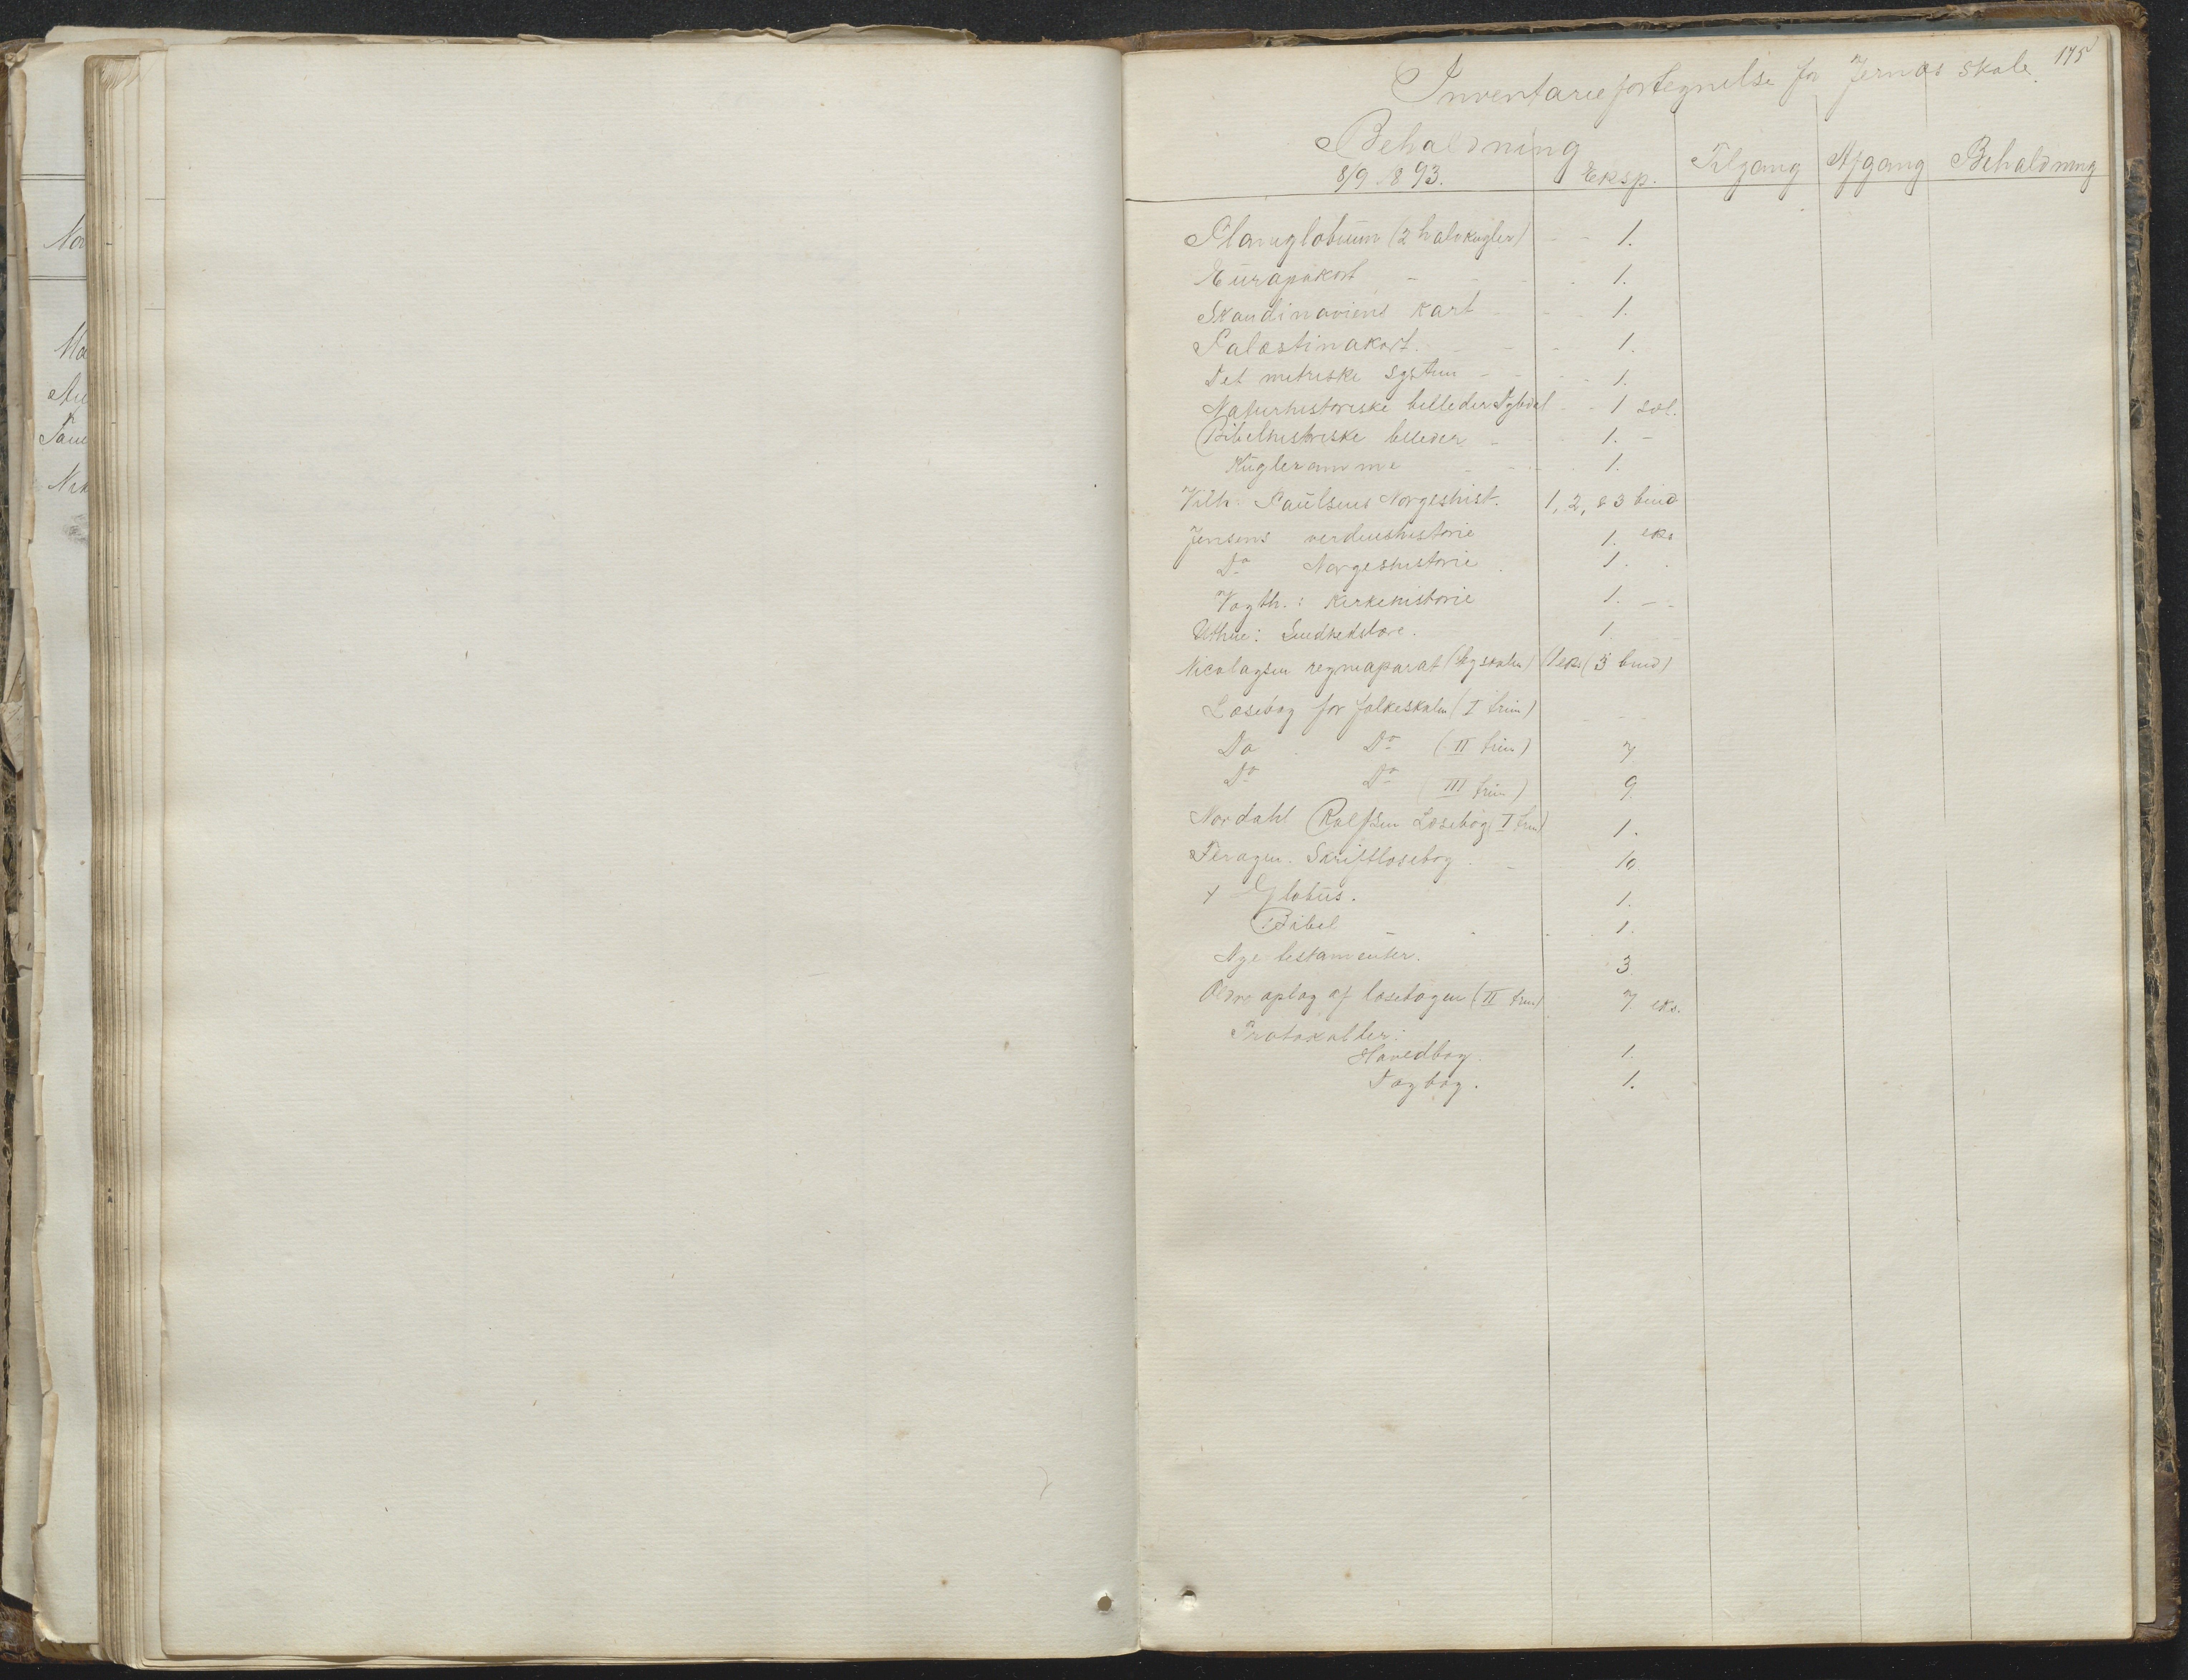 Nov
Ma
Au
Jan
175
Inventariefortegnelse for Jernæs skole.
Beholdning
8/9 1893. Eksp. Tilgang Afgang Beholdning
Planiglobium (2 halvkugler) - - 1.
Europakort - - - 1.
Skandinaviens kart - - - 1.
Palæstinakort. - - - 1.
Det metriske system - - - 1.
Naturhistoriske billeder - 1 sæt.
Bibelhistoriske billeder - - 1. -
Kugleramme - - - 1.
Vilh. Paulsens Norgeshist. 1, 2, & 3 bind
Jensens verdenshistorie 1. eks
Do Norgeshistorie. 1. .
Vogth.: Kirkehistorie 1. - -
Uthne: Sundhedslære. 1.
Nicolaysen regneaparat 1 eks (5 bind)
Læsebog for folkeskolen (I trin) - - -
Do Do (II trin) 7
Do Do (III trin) 9
Nordahl Rolfsen Læsebog I trin) 1.
Skriftlæsebog. - 10
+ Globus. 1.
Bibel - - - 1.
Nye testamenter. 3
Ældre oplag af læsebogen (II trin) 7 eks.
Protokoller:
Hovedbog. 1.
Dagbog. 1.